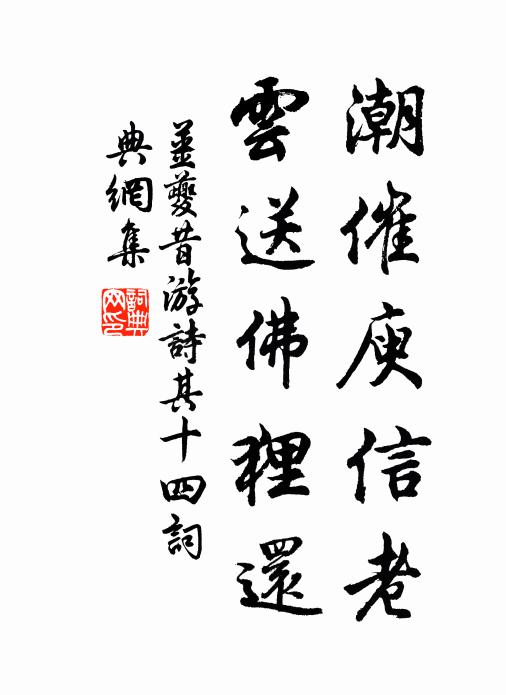 潮催庾信老
雲送佛狸還
姜夔昔游詩其十四詞
典網集
詞典
網印